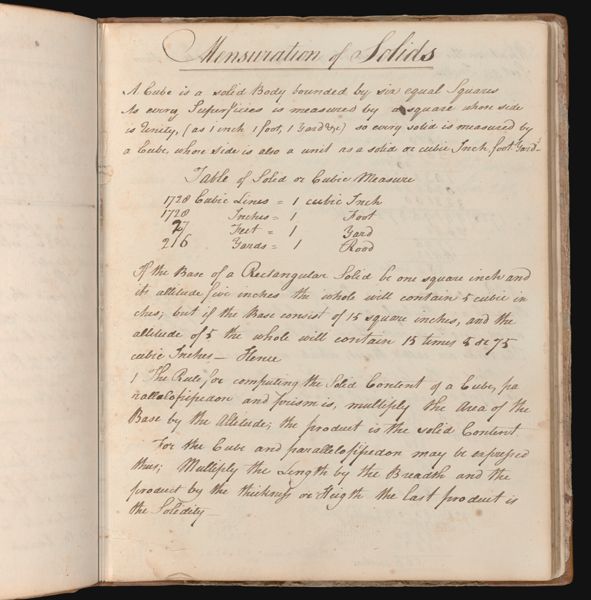 Mensuration of Solids
A Cube is a solid Body bounded by six equal Squares
As every Superficies is measured by a square whose side
is Unity, (as 1 inch 1 foot, 1 Yard &c) so every solid is measured by
a Cube whose side is also a unit as a solid or cubic Inch, foot Yard
Table of Solid or Cubic Measure
1728 Cubic Lines = 1 cubic Inch
1728 Inches = 1 Foot
27 Feet = 1 Yard
216 Yards = 1 Rood
If the Base of a Rectangular Solid be one square inch and
its altitude five inches the whole will contain 5 cubic in
ches; but if the Base consist of 15 square inches, and the
altitude of 5 the whole will contain 15 times 5 or 75
cubic Inches — Hence
1 The Rule, for computing the Solid Content of a Cube, pa
rallolopipedon and prism is, multiply the Area of the
Base by the Altitude; the product is the solid Content
For the Cube and parallolopipedon may be expressed
thus; Multiply the Length by the Breadth and the
product by the thickness or Heigth the last product is
the Solidity —